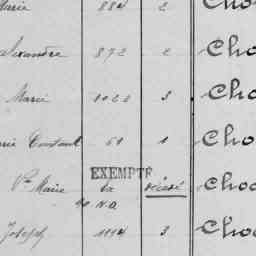 Marie 884 2 Cho
Alexandre 872 2 Cho
Marie 1020 3 Cho
Marie Constant 61 1 Cho
EXEMPTÉ
Ve Marie décédé Choc
Joseph 1194 3 Choc